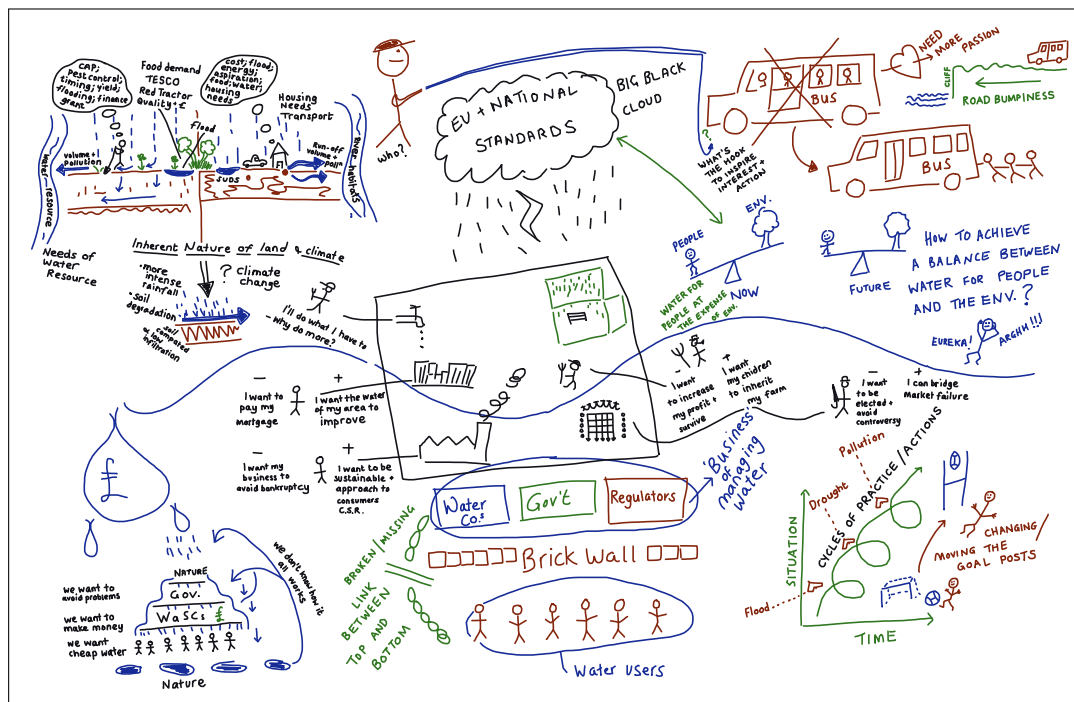 CAP;
Pest control;
timing; yield;
flooding; finance
grant
Food demand
TESCO
Red Tractor
Quality + £
flood
cost; flood;
energy;
aspiration;
food; water;
housing
needs
Housing
Needs
Transport
Volume +
Pollution
Run-off
volume +
poll^n
SUDS
water resource
river habitats
Needs of
Water
Resource
Inherent Nature of land & climate
? climate
change
• more
intense
rainfall
• soil
degradation
soil
compacted
low
infiltration
I'll do what I have to
- Why do more?
who?
EU + NATIONAL
STANDARDS
BIG BLACK
CLOUD
?
WHAT'S
THE HOOK
TO INSPIRE
INTEREST +
ACTION
BUS
NEED
MORE
PASSION
CLIFF
ROAD BUMPINESS
BUS
PEOPLE
ENV.
NOW
WATER FOR
PEOPLE AT
THE EXPENSE
OF ENV.
FUTURE
HOW TO ACHIEVE
A BALANCE BETWEEN
WATER FOR PEOPLE
AND THE ENV.?
EUREKA!
ARGHH!!!
-
I want to
pay my
mortgage
+
I want the water
of my area to
improve
-
I want my
business to
avoid bankruptcy
+
I want to be
sustainable +
approach to
consumers
C.S.R.
-
I want
to increase
my profit +
survive
+
I want
my children
to inherit
my farm
-
I want
to be
elected +
avoid
controversy
+
I can bridge
market failure
£
Water
Co.s
Gov't
Regulators
'Business'
of
managing
water
Brick Wall
BROKEN/MISSING
LINK
BETWEEN
TOP AND
BOTTOM
Water users
NATURE
Gov.
WaSCs £
we want to
avoid problems
we want to
make money
we want
cheap water
we don't know how it
all works
Nature
SITUATION
TIME
CYCLES OF PRACTICE/ACTIONS
Flood
Drought
Pollution
CHANGING/
MOVING THE
GOAL POSTS